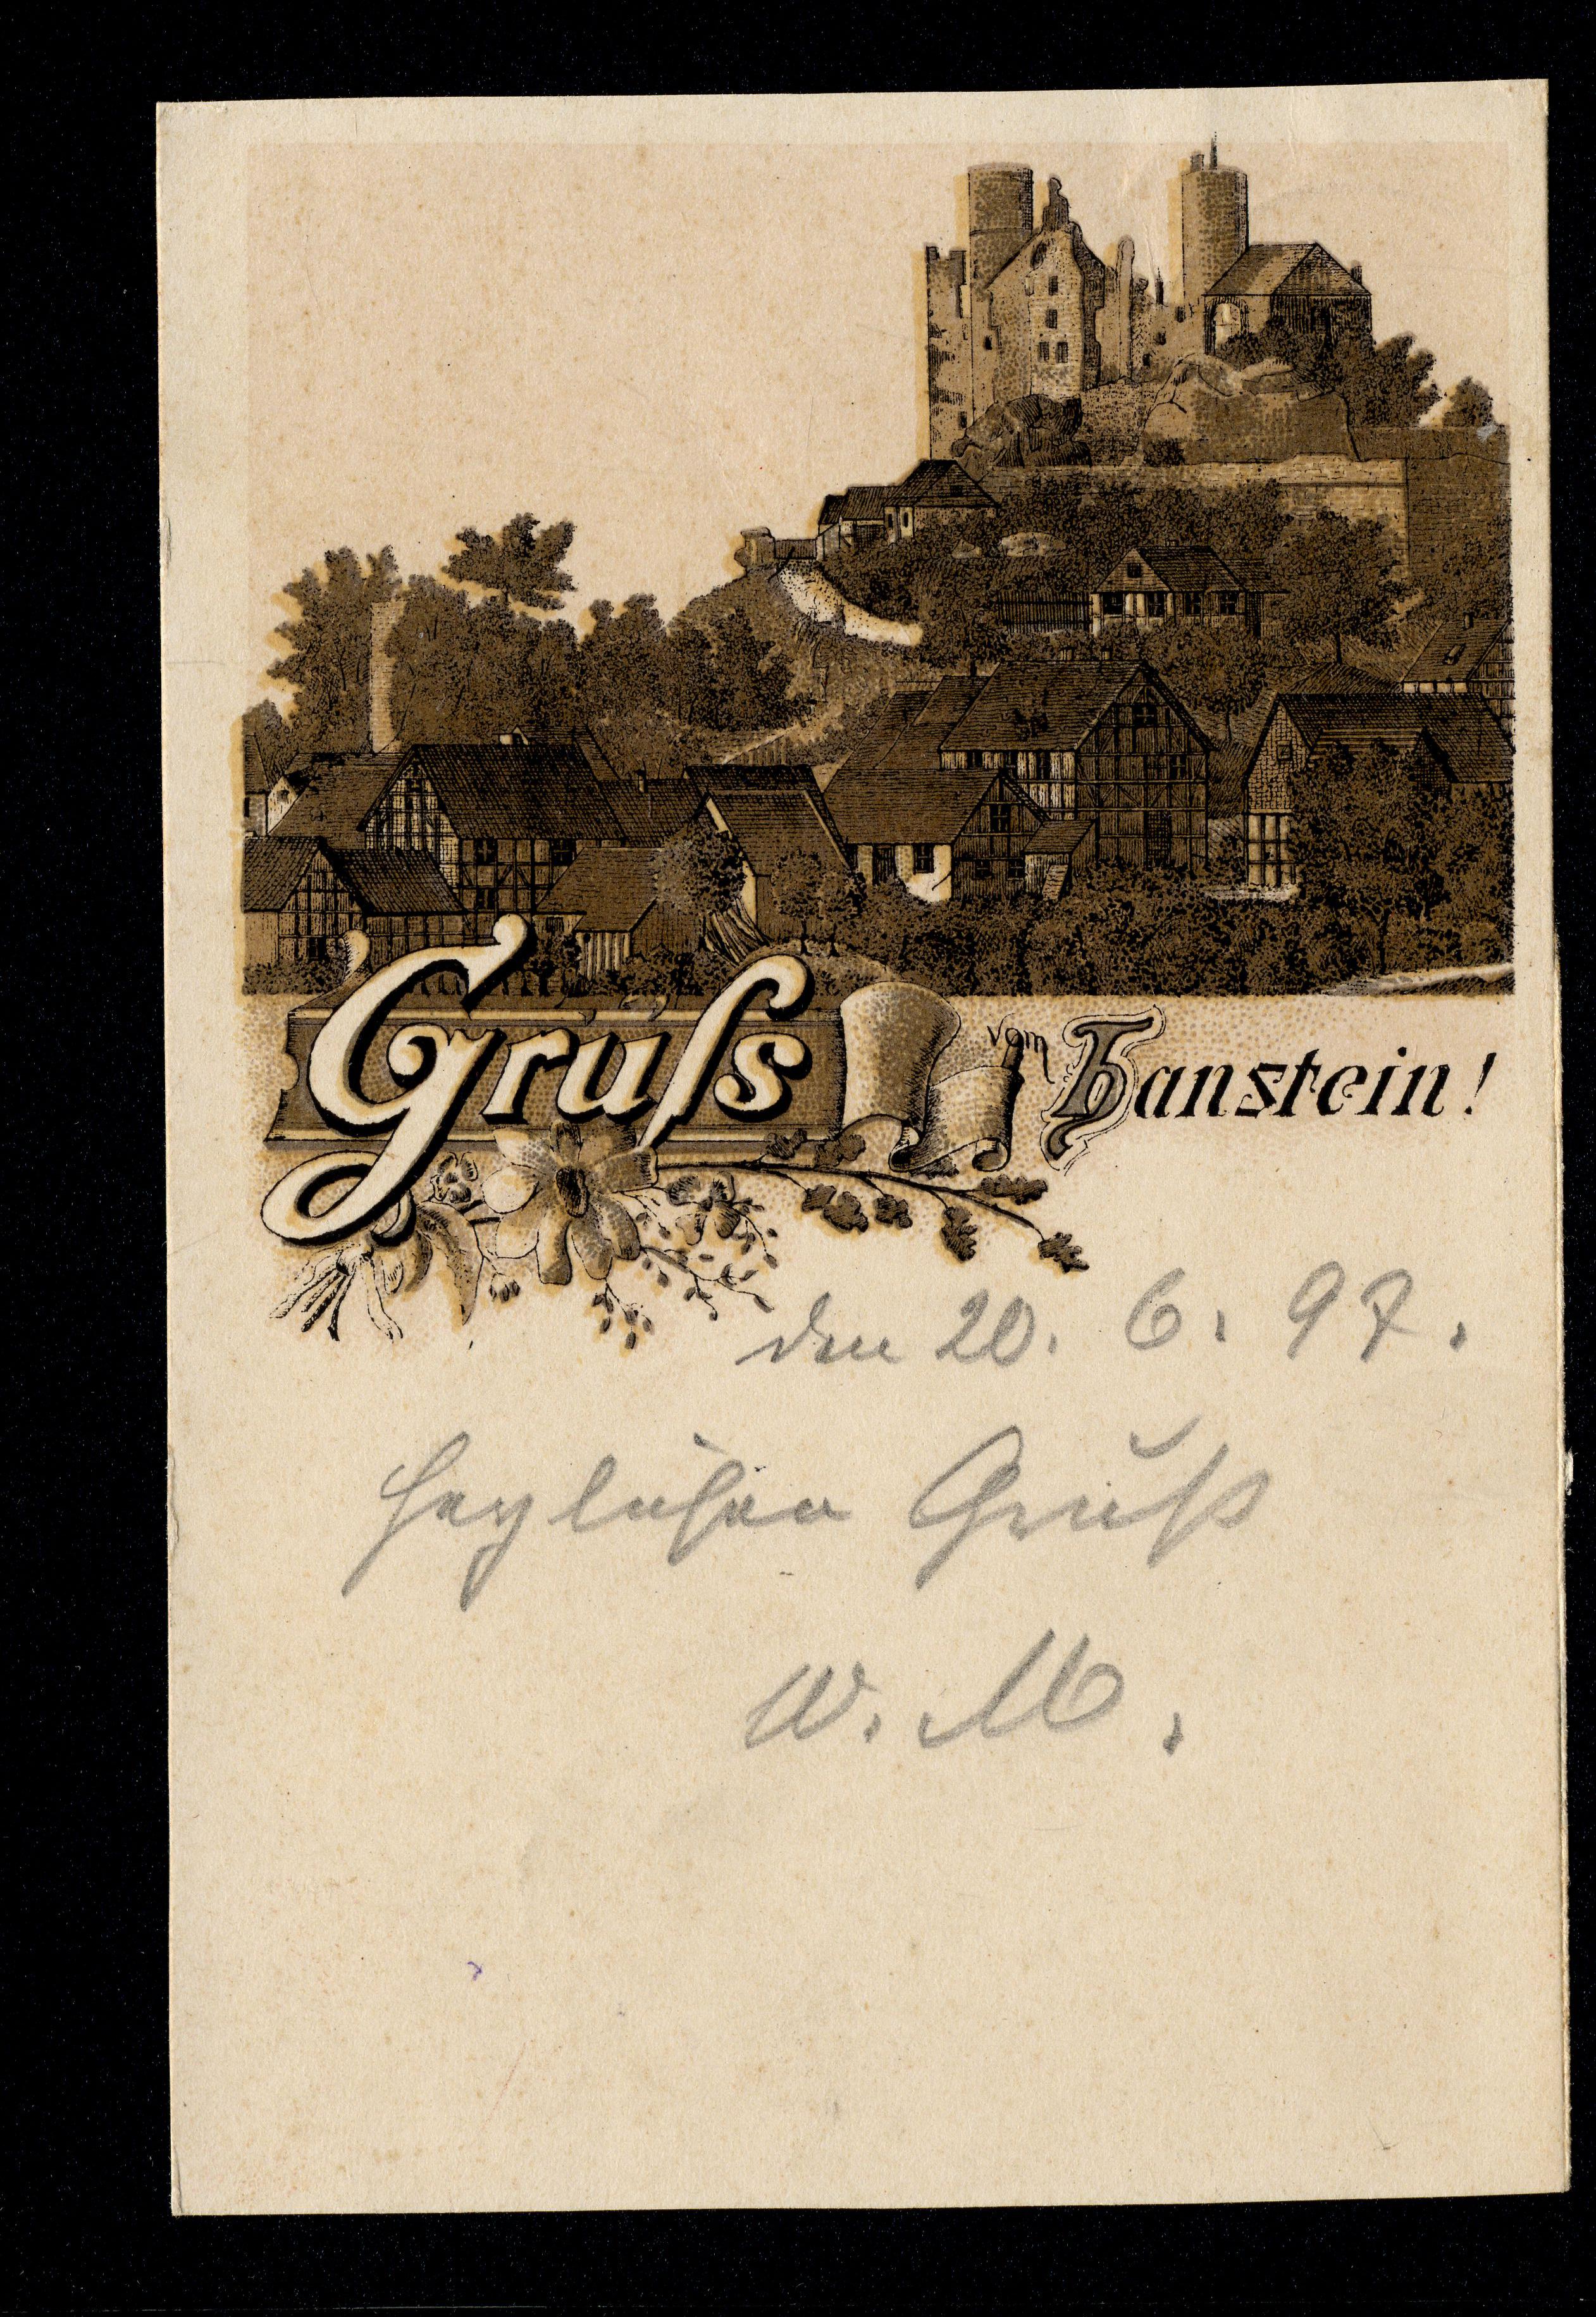 Gruſs vom Hanstein!
den 20. 6. 97.
Herzlichen Gruß
W. M.